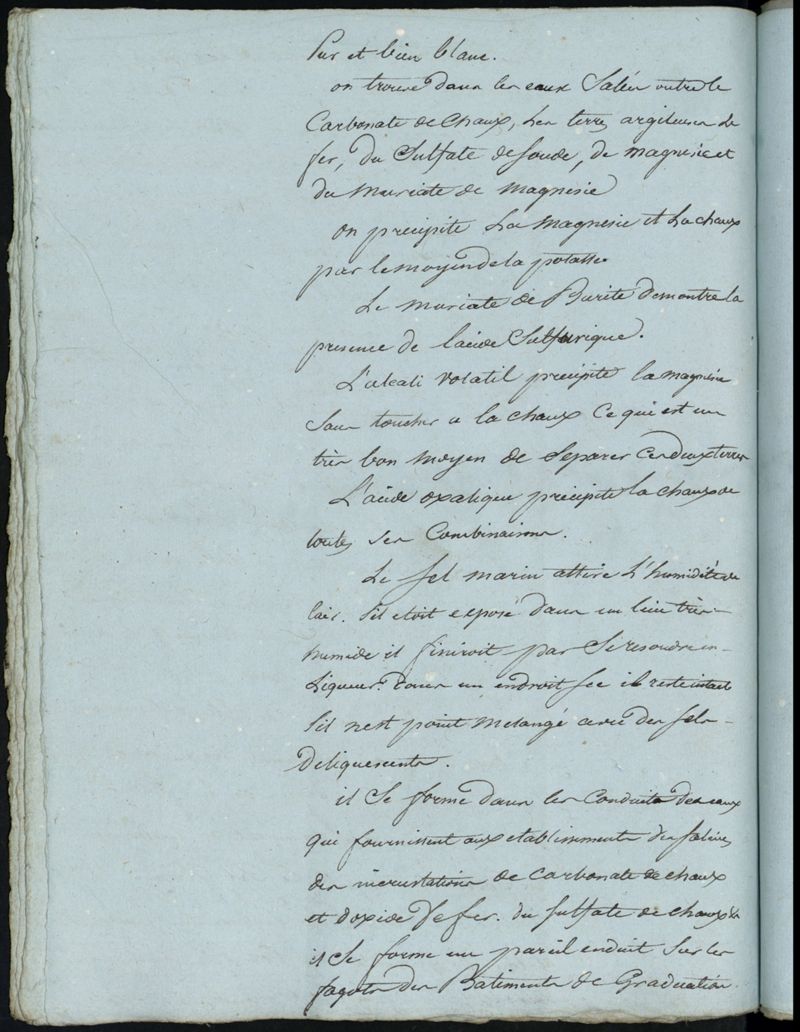 Pur et bien blanc.
on trouve dans les eaux Salées outre le
Carbonate de chaux, des terres argileuses Le
fer, du Sulfate de Soude, de magnesie et
du Muriate de Magnesie
on precipite La Magnesie et La chaux
par le moyen de la potasse
Le muriate de Barite demontre la
presence de lacide Sulfurique.
L'alcali volatil precipite la magnesie
Sans toucher a la chaux Ce qui est un
très bon moyen de Separer Ces deux terres
L'acide oxalique precipite la chaux de
toutes ses Combinaisons.
Le Sel marin attire L'humidité de
lair. S'il etoit exposé dans un lieu très
humide il finiroit par Se resoudre en
Liqueur. dans un endroit Sec il reste intact
S'il nest point melangé avec des sels
deliquescents.
il Se forme dans les Conduits des eaux
qui fournissent aux etablissements des salines
des incrustations de Carbonate de chaux
et doxide de fer. du sulfate de chaux &a
il Se forme un pareil enduit Sur les
fagots des Batiments de Graduation.